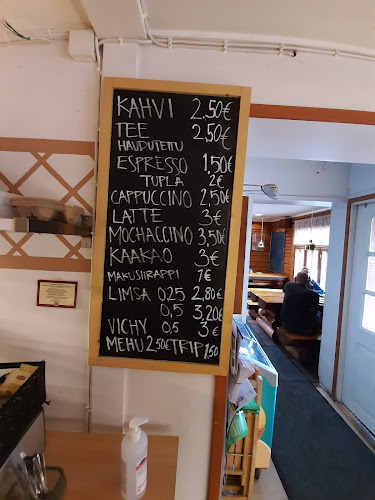 KAHVI 2,50€
TEE 2,50€
HAUDUTETTU
ESPRESSO 1,50€
TUPLA 2€
CAPPUCCINO 2,50€
LATTE 3€
MOCHACCINO 3,50€
KAAKAO 3€
MAKUSIIRAPPI 1€
LIMSA 0,25 2,80€
0,5 3,20€
VICHY 0,5 3€
MEHU 2,50€ TRIP 1,50